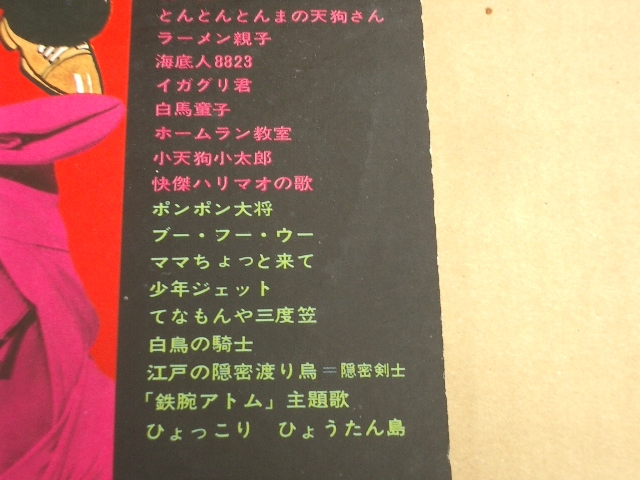 とんとんとんまの天狗さん
ラーメン親子
海底人8823
イガグリ君
白馬童子
ホームラン教室
小天狗小太郎
快傑ハリマオの歌
ポンポン大将
ブー・フー・ウー
ママちょっと来て
少年ジェット
てなもんや三度笠
白鳥の騎士
江戸の隠密渡り鳥＝隠密剣士
「鉄腕アトム」主題歌
ひょっこり　ひょうたん島